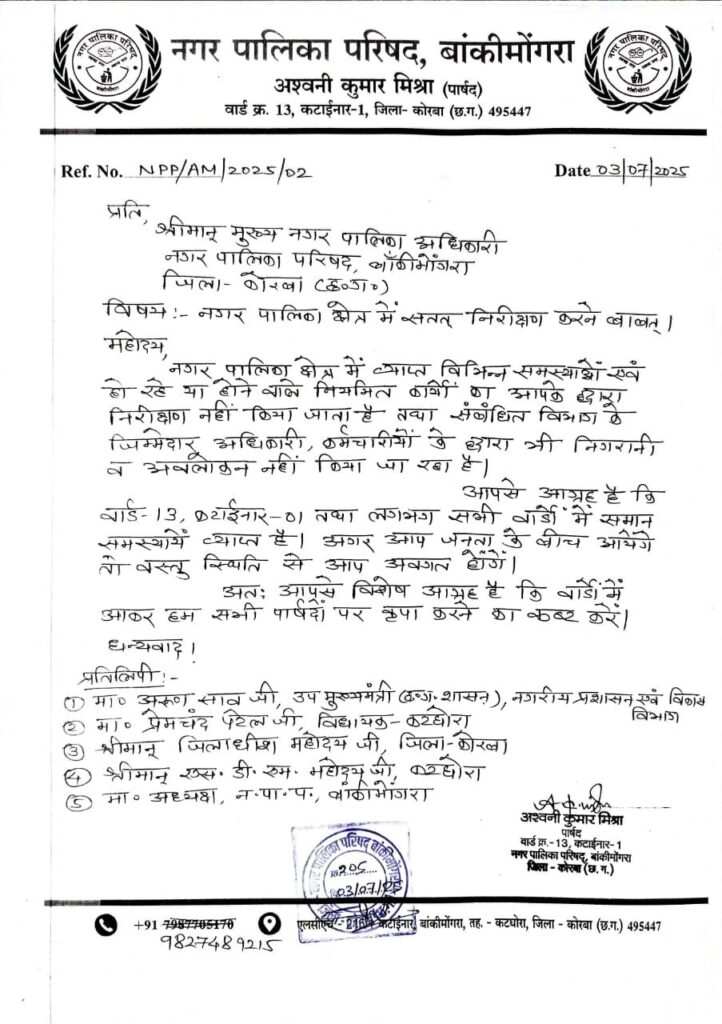 नगर पालिका परिषद, बांकीमोंगरा
अश्वनी कुमार मिश्रा (पार्षद)
वार्ड क्र. 13, कटाईनार-1, जिला- कोरबा (छ.ग.) 495447
Ref. No. NPP/AM/2025/02 Date 03/07/2025
प्रति,
श्रीमान् मुख्य नगर पालिका अधिकारी
नगर पालिका परिषद, बाँकीमोंगरा
जिला- कोरबा (छ०ग०)
विषय:- नगर पालिका क्षेत्र में सतत् निरीक्षण करने बाबत्।
महोदय,
नगर पालिका क्षेत्र में व्याप्त विभिन्न समस्याओं एवं
हो रहे या होने वाले नियमित कार्यों का आपके द्वारा
निरीक्षण नहीं किया जाता है तथा संबंधित विभाग के
जिम्मेदार अधिकारी, कर्मचारीयों के द्वारा भी निगरानी
व अवलोकन नहीं किया जा रहा है।
आपसे आग्रह है कि
वार्ड-13, कटाईनार-01 तथा लगभग सभी वार्डों में समान
समस्यायें व्याप्त है। अगर आप जनता के बीच आयेंगे
तो वस्तु स्थिति से आप अवगत होंगें।
अतः आपसे विशेष आग्रह है कि वार्डों में
आकर हम सभी पार्षदों पर कृपा करने का कष्ट करें।
धन्यवाद!
प्रतिलिपी:-
① मा० अरुण साव जी, उप मुख्यमंत्री (छ०ग० शासन), नगरीय प्रशासन एवं विकास
विभाग
② मा० प्रेमचंद पटेल जी, विधायक- कटघोरा
③ श्रीमान् जिलाधीश महोदय जी, जिला-कोरबा
④ श्रीमान् एस. डी. एम. महोदय जी, कटघोरा
⑤ मा० अध्यक्ष, न.पा.प., बांकीमोंगरा
अश्वनी कुमार मिश्रा
पार्षद
वार्ड क्र.-13, कटाईनार-1
नगर पालिका परिषद, बांकीमोंगरा
जिला - कोरबा (छ.ग.)
नगर पालिका परिषद् बांकीमोंगरा
205
03/07/25
+91 7987705170 कटाईनार, बांकीमोंगरा, तह. - कटघोरा, जिला - कोरबा (छ.ग.) 495447
9827489215